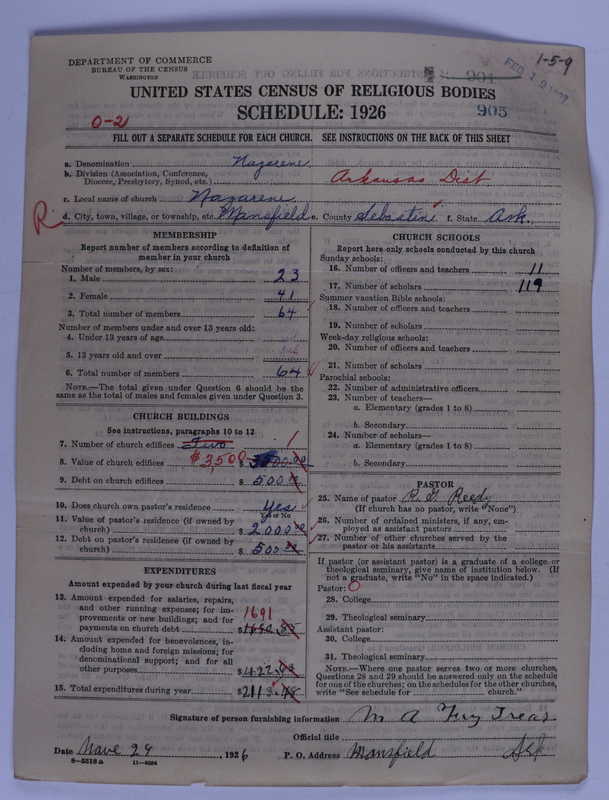 DEPARTMENT OF COMMERCE
BUREAU OF THE CENSUS
WASHINGTON
1-5-9
FEB 19 1927
901
UNITED STATES CENSUS OF RELIGIOUS BODIES
SCHEDULE: 1926
905
0-2
FILL OUT A SEPARATE SCHEDULE FOR EACH CHURCH. SEE INSTRUCTIONS ON THE BACK OF THIS SHEET
a. Denomination Nazarene
b. Division (Association, Conference, Diocese, Presbytery, Synod, etc.) Arkansas Dist
c. Local name of church Nazarene
R d. City, town, village, or township, etc. Mansfield e. County Sebastin f. State Ark.
MEMBERSHIP
Report number of members according to definition of
member in your church
Number of members, by sex:
1. Male 23
2. Female 41
3. Total number of members 64
Number of members under and over 13 years old:
4. Under 13 years of age
5. 13 years old and over
6. Total number of members 64
NOTE.—The total given under Question 6 should be
same as the total of males and females given under Question 3.
CHURCH BUILDINGS
See instructions, paragraphs 10 to 12
7. Number of church edifices Two 1
8. Value of church edifices $3,500 $
9. Debt on church edifices $ 500.00
10. Does church own pastor's residence Yes
Yes or No
11. Value of pastor's residence (if owned by
church) $ 2000.00
12. Debt on pastor's residence (if owned by
church) $ 500.00
EXPENDITURES
Amount expended by your church during last fiscal year
13. Amount expended for salaries, repairs,
and other running expenses; for im-
provements or new buildings; and for
payments on church debt 1691 $
14. Amount expended for benevolences, in-
cluding home and foreign missions; for
denominational support; and for all
other purposes $ 422
15. Total expenditures during year $ 2113.48
CHURCH SCHOOLS
Report here only schools conducted by this church
Sunday schools:
16. Number of officers and teachers 11
17. Number of scholars 119
Summer vacation Bible schools:
18. Number of officers and teachers
19. Number of scholars
Week-day religious schools:
20. Number of officers and teachers
21. Number of scholars
Parochial schools:
22. Number of administrative officers
23. Number of teachers—
a. Elementary (grades 1 to 8)
b. Secondary
24. Number of scholars—
a. Elementary (grades 1 to 8)
b. Secondary
PASTOR
25. Name of pastor R. G. Reedy
(If church has no pastor, write "None")
26. Number of ordained ministers, if any, em-
ployed as assistant pastors
27. Number of other churches served by the
pastor or his assistants
If pastor (or assistant pastor) is a graduate of a college or
theological seminary, give name of institution below. (If
not a graduate, write "No" in the space indicated.)
Pastor: 0
28. College
29. Theological seminary
Assistant pastor:
30. College
31. Theological seminary
NOTE.—Where one pastor serves two or more churches,
Questions 28 and 29 should be answered only on the schedule
for one of the churches; on the schedules for the other churches,
write "See schedule for church."
Signature of person furnishing information M A Treas
Official title
Date Nove 29, 1926 P. O. Address Mansfield Ark
8-5518 a 11-9054